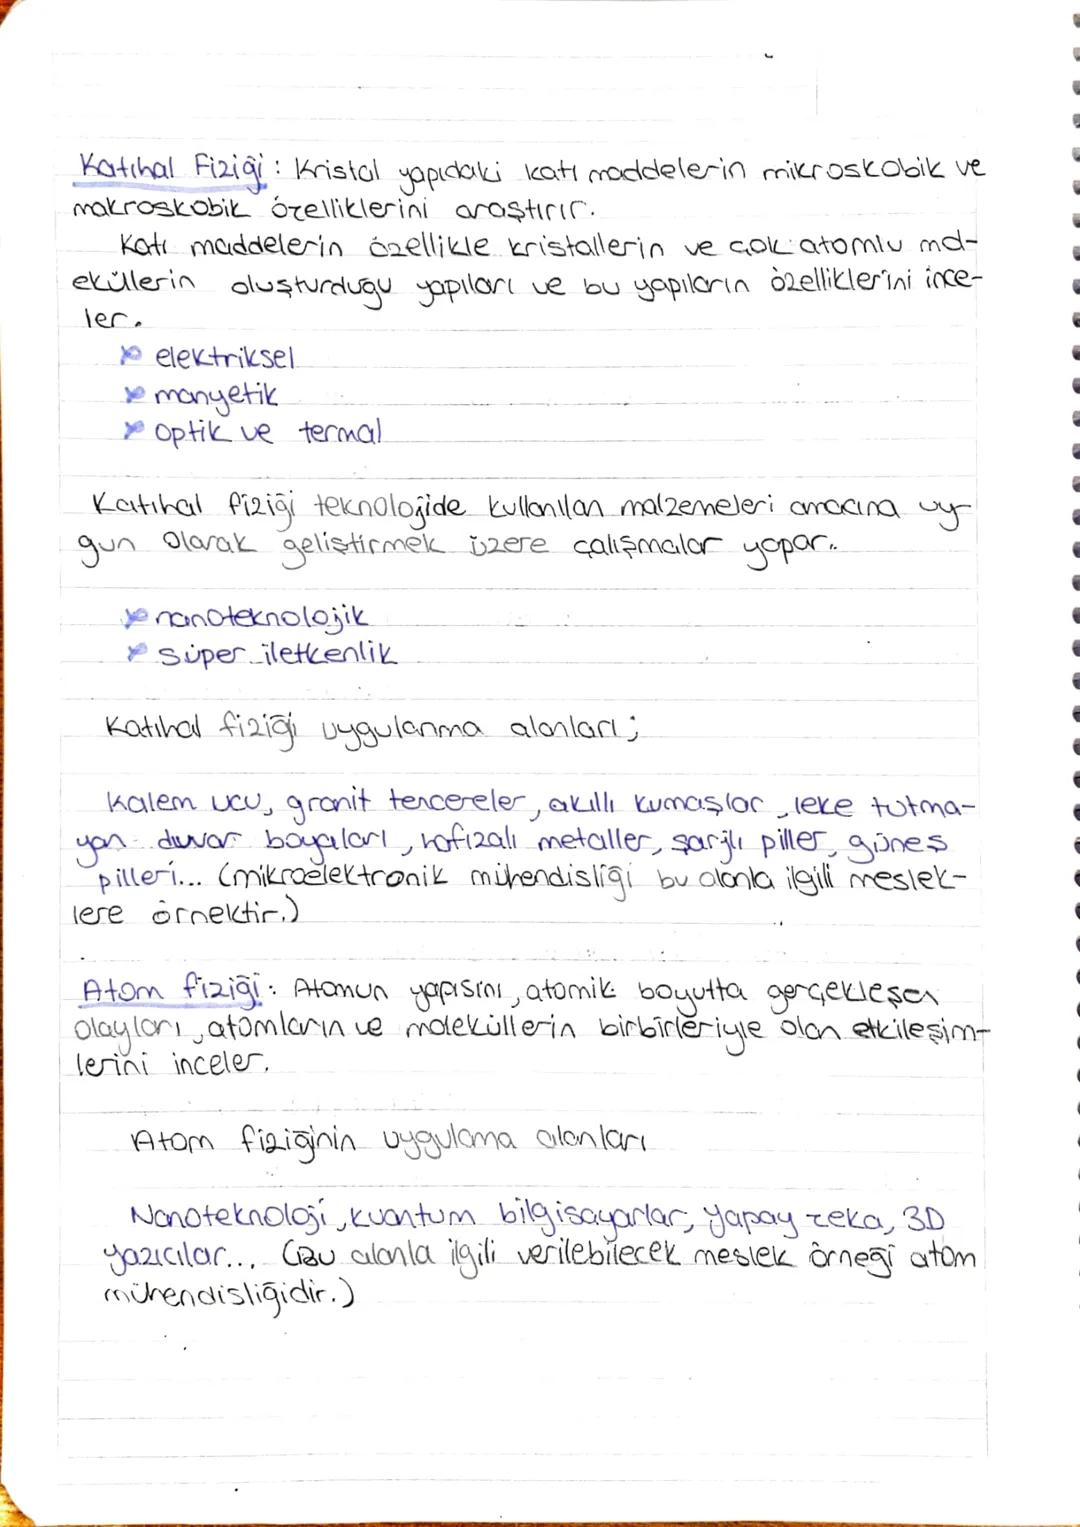 Katıhal Fiziği: Kristal yapıdaki katı maddelerin mikroskobik ve
makroskobik özelliklerini araştırır.
Katı maddelerin özellikle kristallerin ve çok atomlu mol-
eküllerin oluşturduğu yapıları ve bu yapıların özelliklerini ince-
ler.
elektriksel
manyetik
optik ve termal
Katıhal fiziği teknolojide kullanılan malzemeleri amacına uy-
gun olarak geliştirmek üzere çalışmalar yapar..
nanoteknolojik
süper iletkenlik
Katıhal fiziği uygulanma alanları;
Kalem ucu, granit tencereler, akıllı kumaşlar, leke tutma-
yan duvar boyaları, hafızalı metaller, şarjlı piller, güneş
pilleri... (mikroelektronik mühendisliği bu alanla ilgili meslek-
lere örnektir.)
Atom fiziği: Atomun yapısını, atomik boyutta gerçekleşen
olayları, atomların ve moleküllerin birbirleriyle olan etkileşim-
lerini inceler.
Atom fiziğinin uygulama alanları
Nanoteknoloji, kuantum bilgisayarlar, yapay zeka, 3D
yazıcılar... (Bu alanla ilgili verilebilecek meslek örneği atom
mühendisliğidir.)